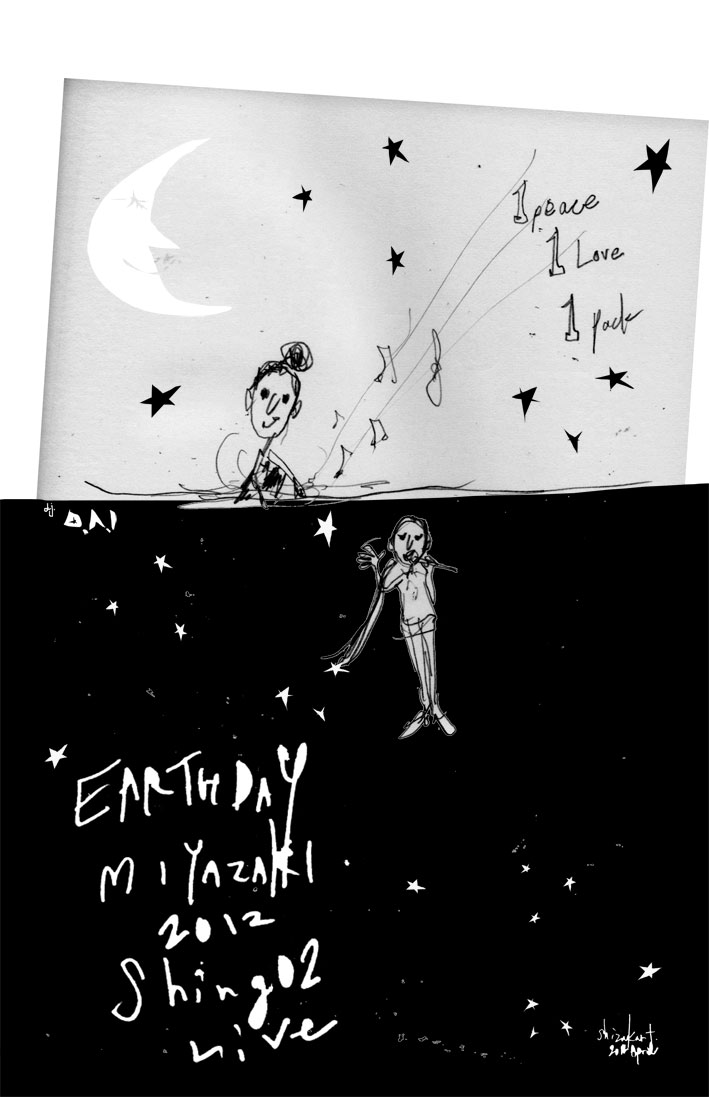 1 peace
1 Love
1 pack
dj.
D.A.I
EARTHDAY
MIYAZAKI.
2012
Shing02
Live
shizukart.
2012 April